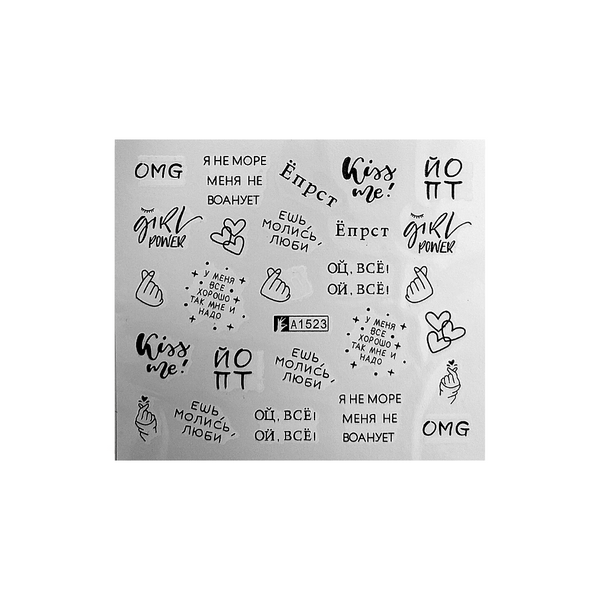 OMG
Я НЕ МОРЕ
МЕНЯ НЕ
ВОАНУЕТ
Ёпрст
Kiss
me!
ЙО
ПТ
GIRL
POWER
ЕШЬ,
МОЛИСЬ,
ЛЮБИ
Ёпрст
GIRL
POWER
У МЕНЯ
ВСЕ
ХОРОШО
ТАК МНЕ И
НАДО
ОЙ, ВСЁ!
ОЙ, ВСЁ!
A1523
У МЕНЯ
ВСЕ
ХОРОШО
ТАК МНЕ И
НАДО
Kiss
me!
ЙО
ПТ
ЕШЬ,
МОЛИСЬ,
ЛЮБИ
ЕШЬ,
МОЛИСЬ,
ЛЮБИ
ОЙ, ВСЁ!
ОЙ, ВСЁ!
Я НЕ МОРЕ
МЕНЯ НЕ
ВОАНУЕТ
OMG